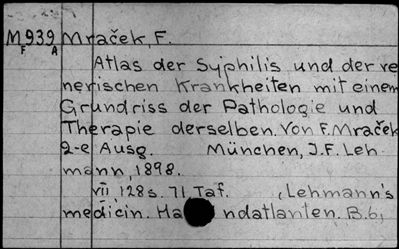 M 939 Mraček, F.
F A
Atlas der Syphilis und der ve
nerischen Krankheiten mit einem
Grundriss der Pathologie und
Therapie derselben. Von F. Mraček
2-e Ausg. München, J.F. Leh
mann, 1898.
VII, 128 s. 71 Taf. , Lehmann's
medicin. Ha ndatlanten. B.6,